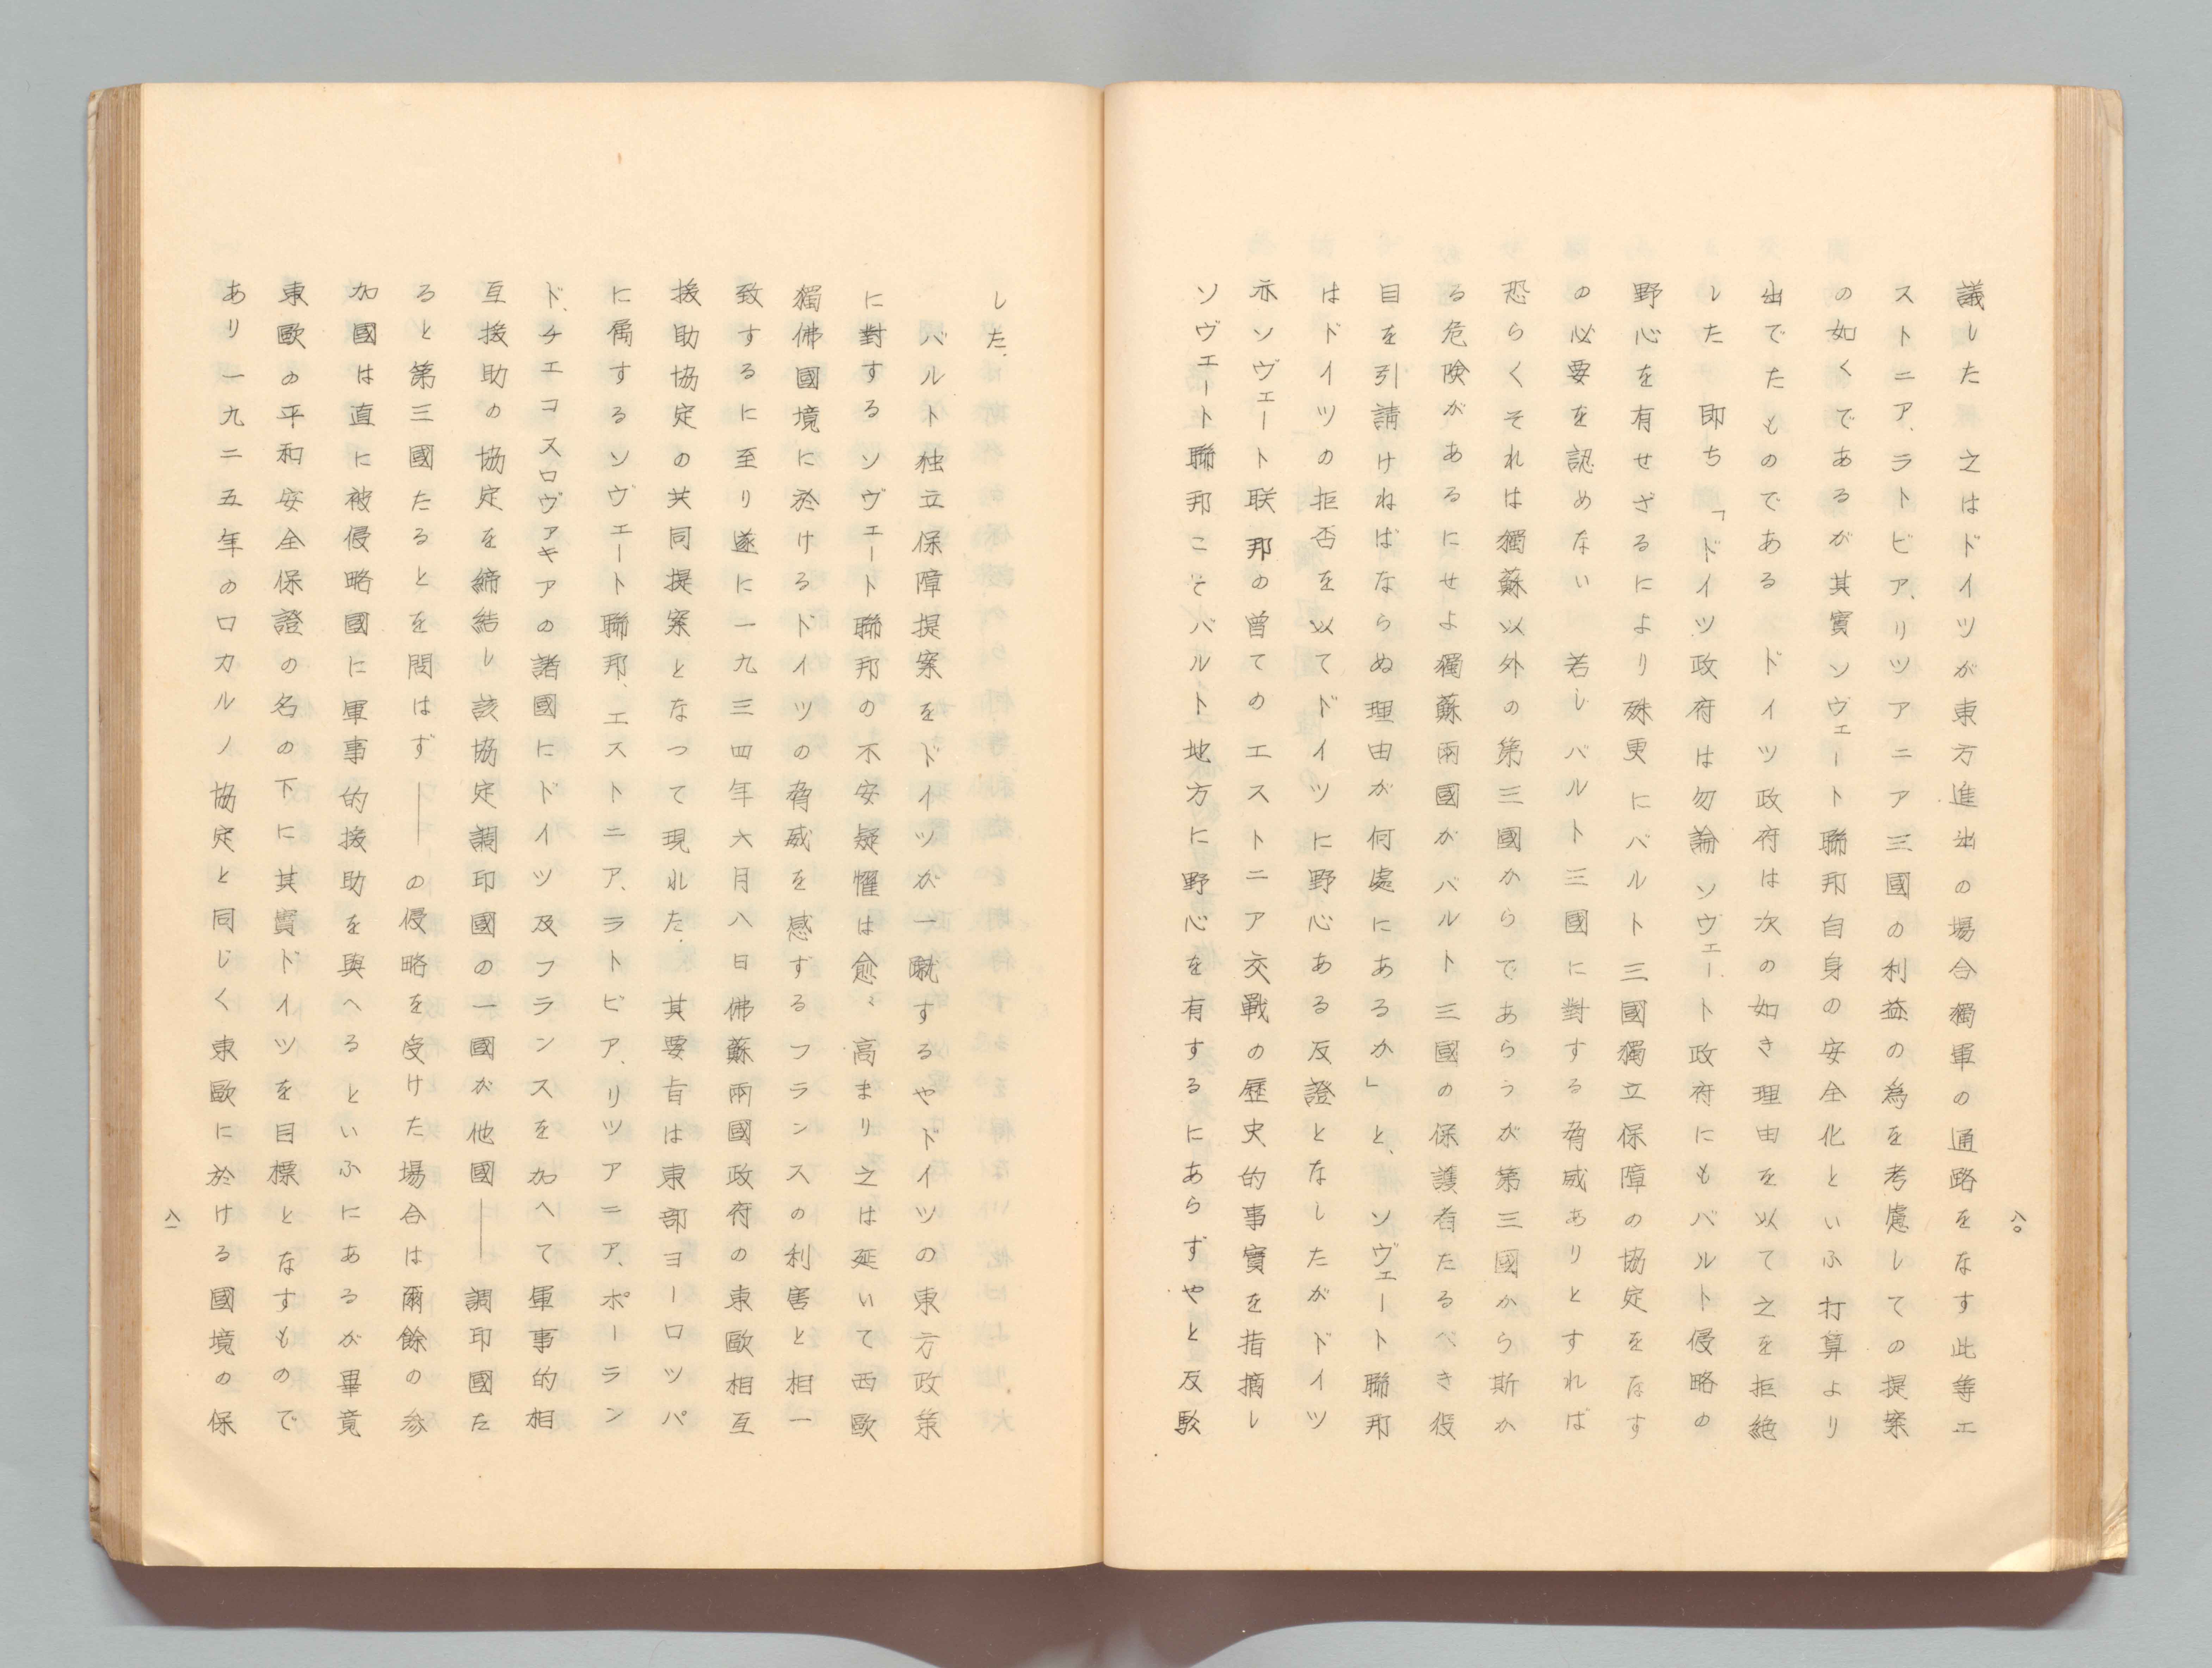 八〇
議した　之はドイツが東方進出の場合獨軍の通路をなす此等エ
ストニア、ラトビア、リツアニア三國の利益の為を考慮しての提案
の如くであるが其實ソヴェート聯邦自身の安全化といふ打算より
出でたものである　ドイツ政府は次の如き理由を以て之を拒絶
した　即ち「ドイツ政府は勿論ソヴェート政府にもバルト侵略の
野心を有せざるにより殊更にバルト三國獨立保障の協定をなす
の必要を認めない　若しバルト三國に對する脅威ありとすれば
恐らくそれは獨蘇以外の第三國からであらうが第三國から斯か
る危険があるにせよ獨蘇兩國がバルト三國の保護者たるべき役
目を引請けねばならぬ理由が何處にあるか」と、ソヴェート聯邦
はドイツの拒否を以てドイツに野心ある反證となしたがドイツ
亦ソヴェート联邦の曾てのエストニア交戰の歷史的事實を指摘し
ソヴェート聯邦こそバルト地方に野心を有するにあらずやと反駁
した、
バルト独立保障提案をドイツが一蹴するやドイツの東方政策
に對するソヴェート聯邦の不安疑懼は愈〻高まり之は延いて西歐
獨佛國境に於けるドイツの脅威を感ずるフランスの利害と相一
致するに至り遂に一九三四年六月八日佛蘇兩國政府の東歐相互
援助協定の共同提案となつて現れた、其要旨は東部ヨーロツパ
に屬するソヴェート聯邦、エストニア、ラトビア、リツアニア、ポーラン
ド、チエコスロヴァキアの諸國にドイツ及フランスを加へて軍事的相
互援助の協定を締結し該協定調印國の一國が他國――調印國た
ると第三國たるとを問はず――の侵略を受けた場合は爾餘の參
加國は直に被侵略國に軍事的援助を與へるといふにあるが畢竟
東歐の平和安全保證の名の下に其實ドイツを目標となすもので
あり一九二五年のロカルノ協定と同じく東歐に於ける國境の保
八一